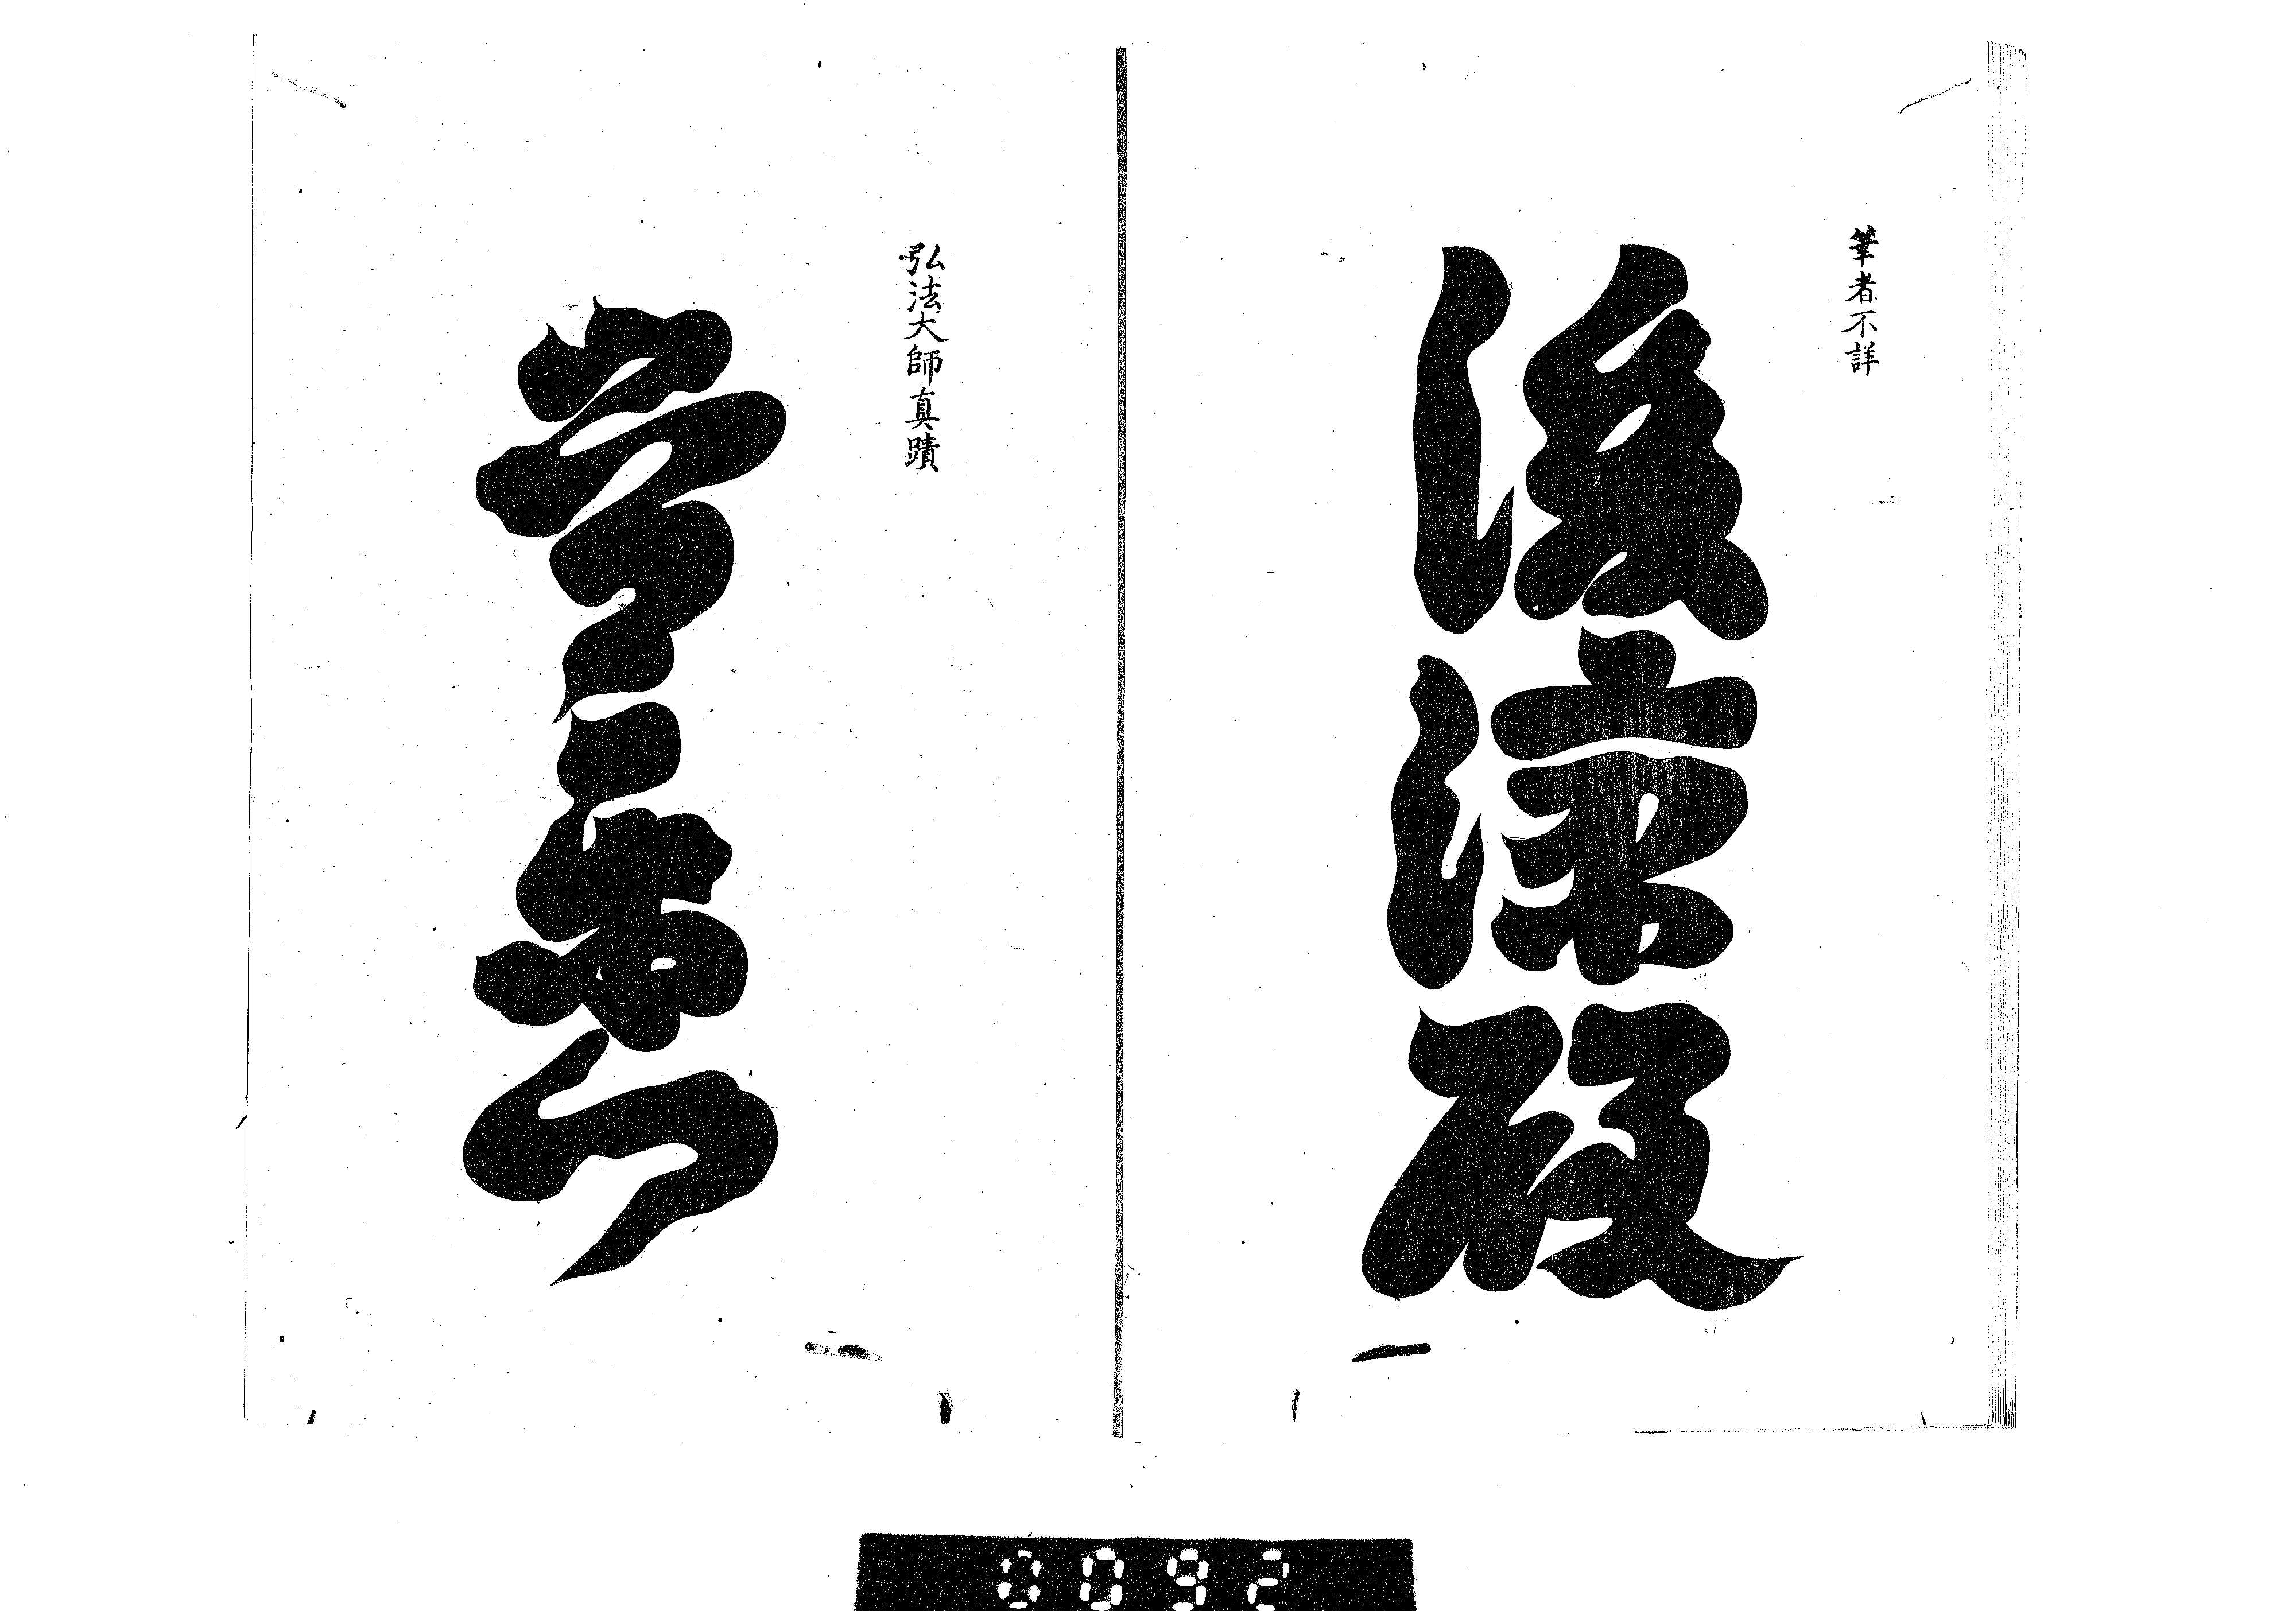 筆者不詳
後涼殿
弘法大師真蹟
0092